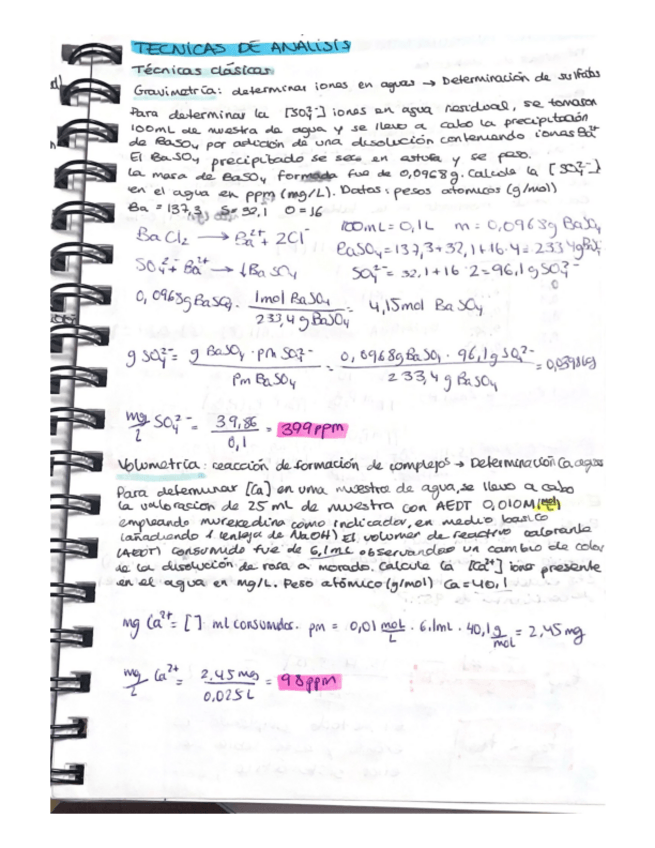 TECNICAS DE ANÁLISIS
Técnicas clásicas
Gravimetría: determinar iones en aguas → Determinación de sulfatos
Para determinar la [SO₄²⁻] iones en agua residual, se tomaron
100mL de muestra de agua y se llevo a cabo la precipitación
de BaSO₄ por adición de una disolución conteniendo iones Ba²⁺
El BaSO₄ precipitado se seco en estufa y se peso.
La masa de BaSO₄ formada fue de 0,0968g. Calcula la [SO₄²⁻]
en el agua en ppm (mg/L). Datos: pesos atomicos (g/mol)
Ba = 137,3 S=32,1 O=16
BaCl₂ → Ba²⁺ + 2Cl⁻ 100mL = 0,1L m = 0,0968g BaSO₄
BaSO₄ = 137,3+32,1+16·4 = 233'4g
SO₄²⁻ + Ba²⁺ → ↓BaSO₄ SO₄²⁻ = 32,1+16·2 = 96,1g SO₄²⁻
0,0968g BaSO₄ · 1mol BaSO₄ / 233,4g BaSO₄ = 4,15mol BaSO₄
g SO₄²⁻ = g BaSO₄ · pm SO₄²⁻ / Pm BaSO₄ = 0,0968g BaSO₄ · 96,1g SO₄²⁻ / 233,4 g BaSO₄ = 0,03986g
mg/L SO₄²⁻ = 39,86 / 0,1 = 399ppm
Volumetría: reacción de formación de complejos → Determinación Ca aguas
Para determinar [Ca] en una muestra de agua, se llevo a cabo
la valoración de 25 mL de muestra con AEDT 0,010M (mol/L)
empleando murexedina como indicador, en medio basico
(añadiendo 1 lenteja de NaOH) El volumen de reactivo valorante
(AEDT) consumido fue de 6,1mL observandose un cambio de color
de la disolución de rosa a morado. Calcule la [Ca²⁺] ions presente
en el agua en mg/L. Peso atómico (g/mol) Ca=40,1
mg Ca²⁺ = [ ] · ml consumidos · pm = 0,01 mol/L · 6,1mL · 40,1 g/mol = 2,45 mg
mg/L Ca²⁺ = 2,45 mg / 0,025L = 98ppm